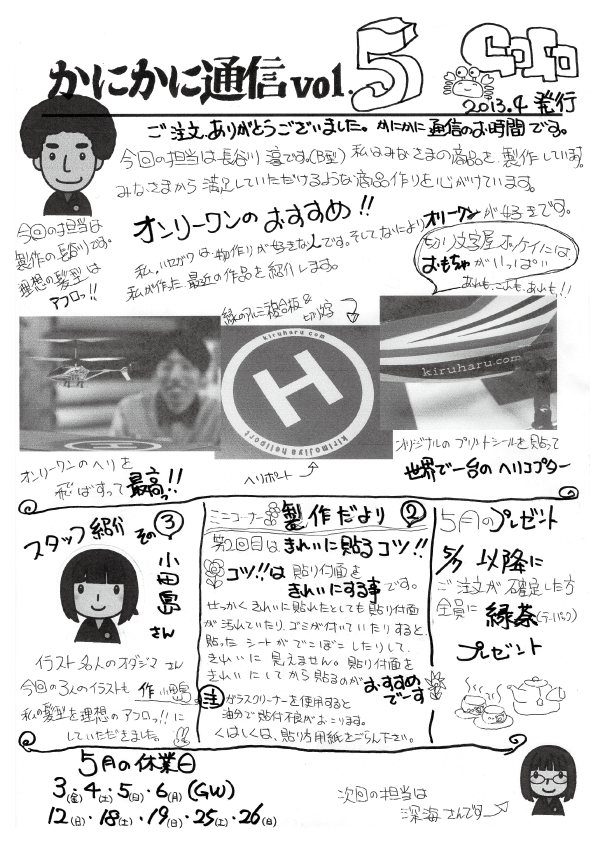 かにかに通信 vol.5
2013.4 発行
ご注文、ありがとうございました。かにかに通信のお時間です。
今回の担当は長谷川 淳です。(B型) 私はみなさまの商品を、製作しています。
みなさまから満足していただけるような商品作りを心がけています。
今回の担当は
製作の長谷川です。
理想の髪型は
アフロッ!!
オンリーワンのおすすめ!!
私、ハセガワは、物作りが好きな人です。そして、なにより オンリーワン が好きです。
私が作った最近の作品を紹介します。
切り文字屋ポッケイには、
おもちゃがいっぱい
あれも、これも、あれも!!
緑のアルミ複合板&
切り文字
kiruharu.com
H
kirimojiya heliport
kiruharu.com
オンリーワンのヘリを
飛ばすって最高っ!!
ヘリポート
オリジナルのプリントシールを貼って
世界で一台のヘリコプター
スタッフ紹介 その③
小田島さん
イラスト名人のオダジマさん
今回の3人のイラストも 作 小田島。
私の髪型を理想のアフロッ!!に
していただきました。
ミニコーナー 製作だより ②
第2回目は きれいに貼るコツ!!
コツ!!は 貼り付面を
きれいにする事です。
せっかくきれいに貼れたとしても貼り付面
が汚れていたり、ゴミが付いていたりすると、
貼ったシートがでこぼこしたりして、
きれいに見えません。貼り付面を
きれいにしてから貼るのが おすすめ
でーす
注 ガラスクリーナーを使用すると
油分で貼付不良がおこります。
くはしくは、貼り方用紙をごらん下さい。
5月のプレゼント
5/7 以降に
ご注文が確定した方
全員に 緑茶(ティーパック)
プレゼント
5月の休業日
3(金)・4(土)・5(日)・6(月) (GW)
12(日)・18(土)・19(日)・25(土)・26(日)
次回の担当は
深海さんです